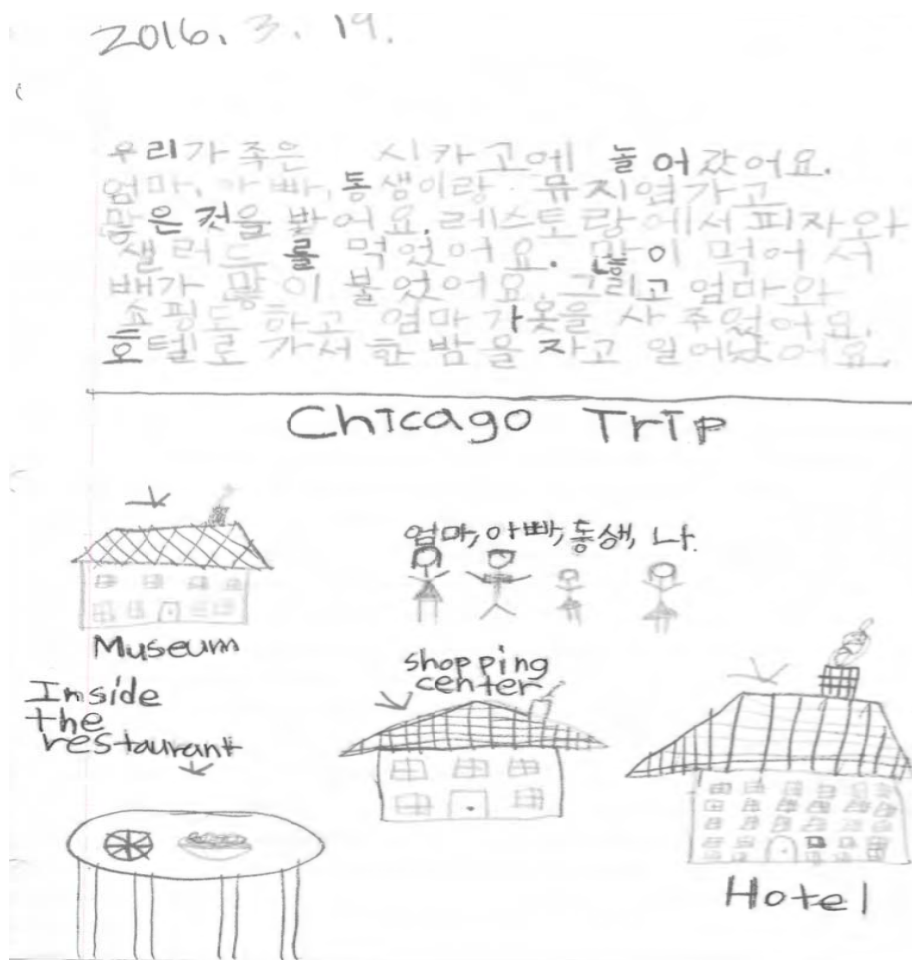 2016. 3. 19.
우리가 족은 시카고에 놀어갔어요.
엄마, 아빠, 동생이랑 뮤지엄가고
많은 것을 봤어요. 레스토랑에서 피자와
샐러드를 먹었어요. 많이 먹어서
배가 많이 불었어요. 그리고 엄마와
쇼핑도 하고 엄마가 옷을 사 주었어요.
호텔로 가서 한 밤을 자고 일어났어요.
Chicago Trip
엄마, 아빠, 동생, 나.
Museum
shopping
center
Inside
the
restaurant
Hotel